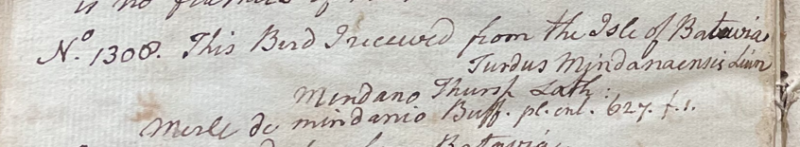 is no
No. 1308. This Bird I received from the Isle of Batavia
Turdus Mindanaensis Linn
Mindano Thrush Lath:
Merle de mindanao Buff. pl. enl. 627. f. 1.
Batavia